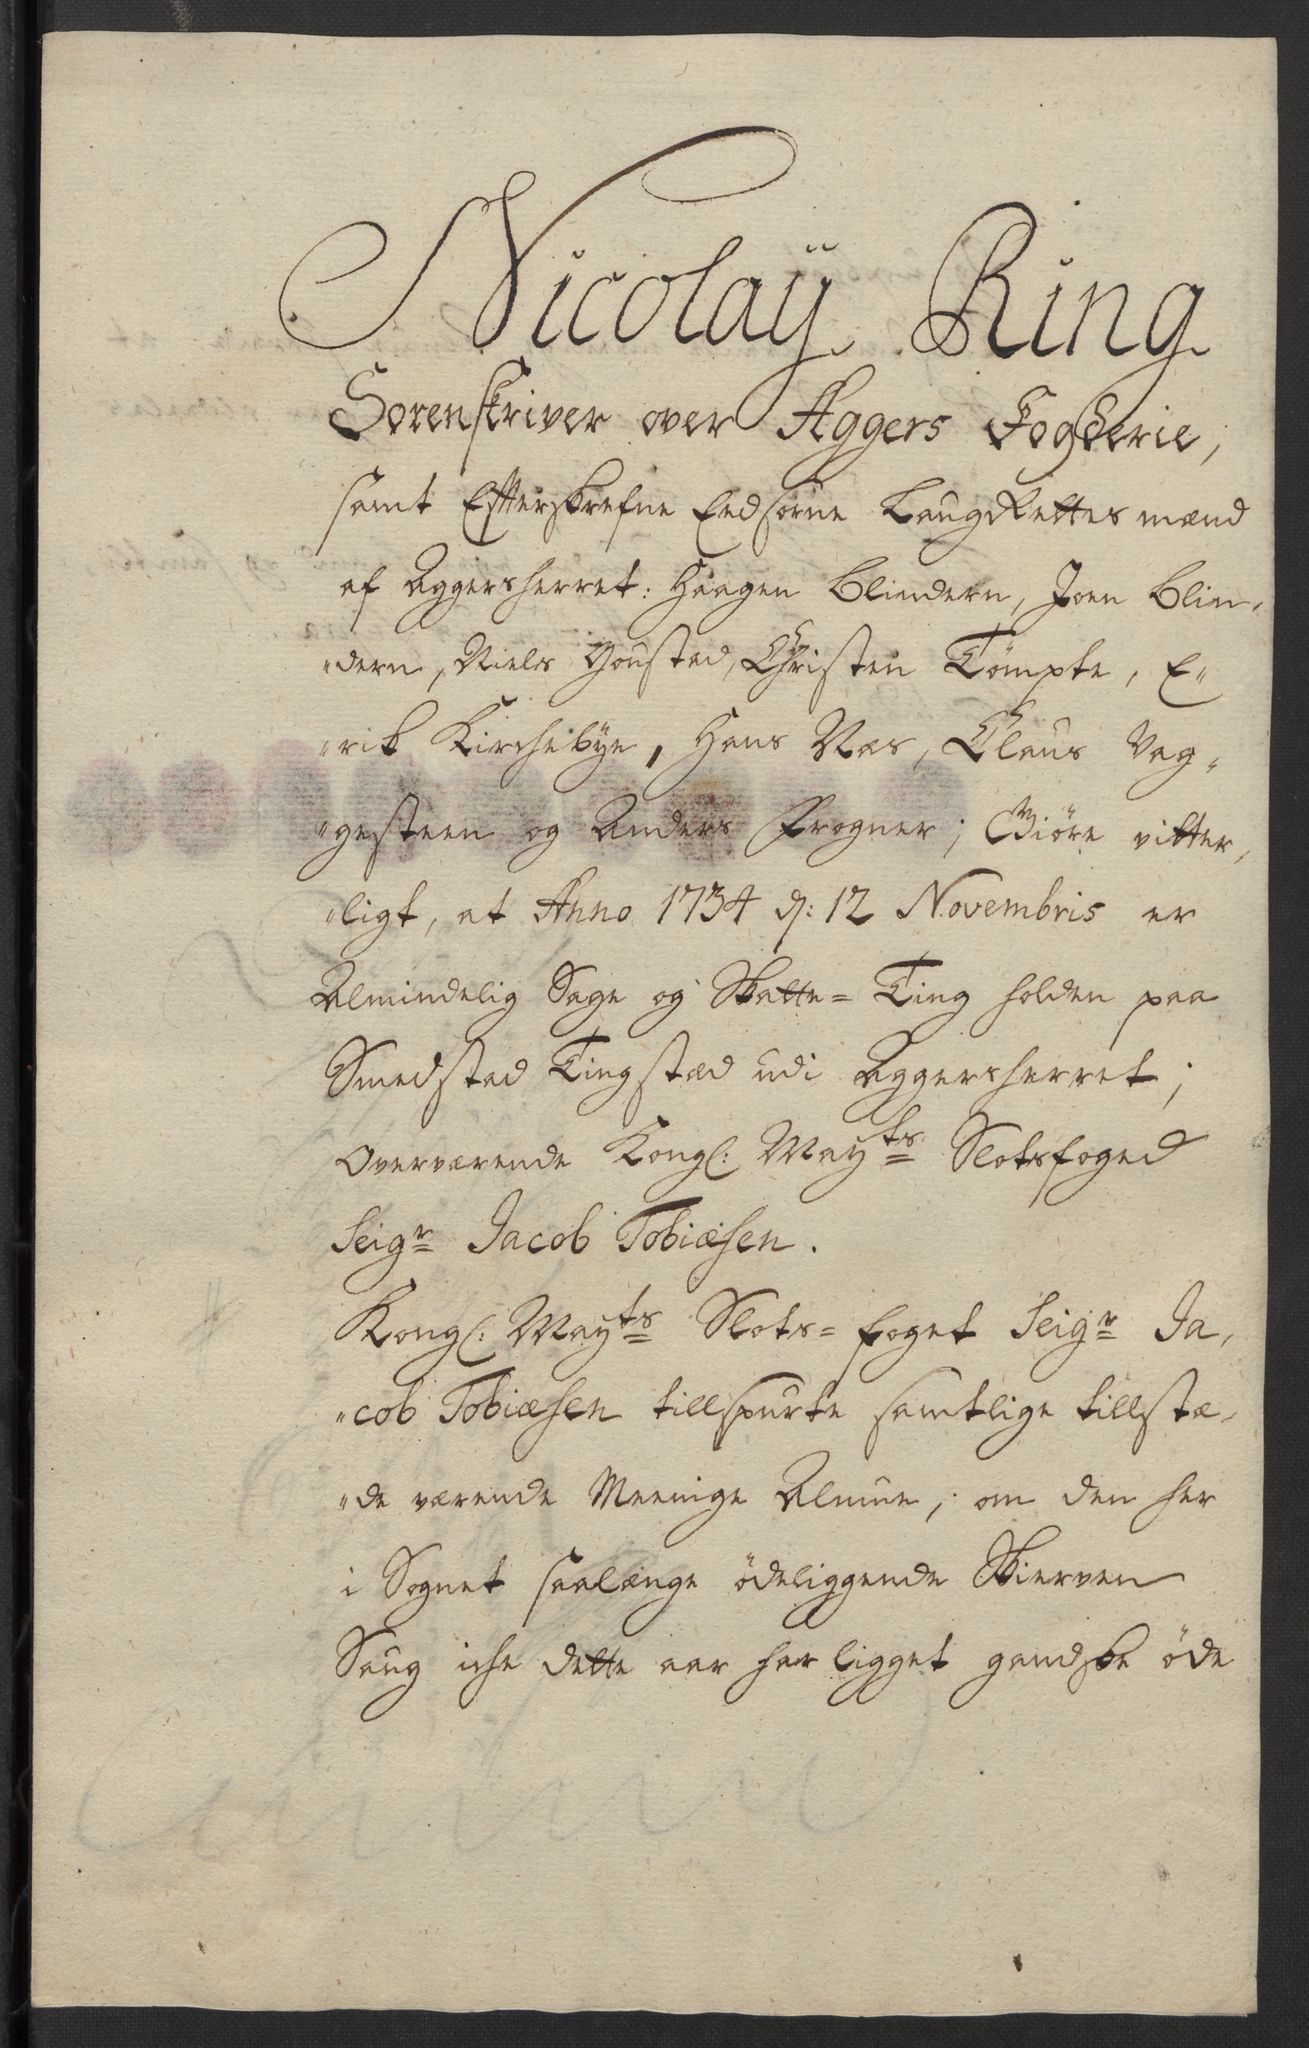 Nicolaÿ Ring
Sorenskriver over Aggers Fogderie,
samt Efterskrefne Eedsorne LaugRettes mænd
af Aggersherret: Haagen Blindern, Joen Blin„
„dern, Niels Gousted, Christen Tømpte, E„
„rik Kirchebÿe, Hans Næs, Claus Væg„
„gesteen og Anders Frogner; Giöre vitter„
„ligt, at Anno 1734 d: 12 Novembris er
Almindelig Sage og Skatte= Ting holden paa
Smedstad Tingstæd udi Aggersherret;
Overværende Kongl: Mayts Slotsfoged
Seigr Jacob Tobiæsen.
Kongl: Mayts Slots= foget Seigr Ja„
„cob Tobiæsen tillspurte samtlige tillstæ„
„de værende Meenige Almue, om den her
i Sognet saalænge ödeliggende Skierven
Saug iche dette aar har ligget gandske öde